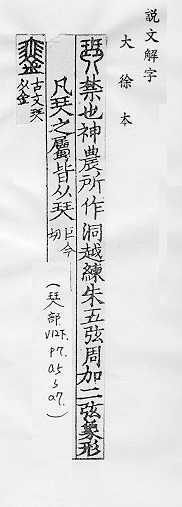 説文解字
大徐本
禁也神農所作洞越練朱五弦周加二弦象形
凡珡之屬皆从珡 巨今切
古文珡从金
(珡部 V12下. P7. a5 s a7.)